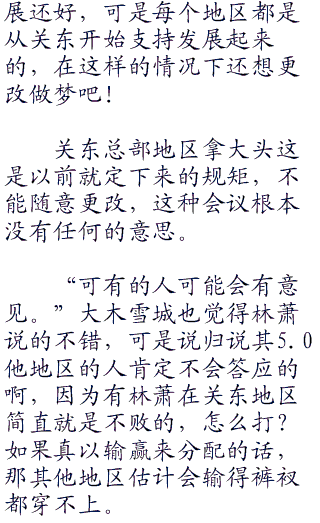 展还好，可是每个地区都是
从关东开始支持发展起来
的，在这样的情况下还想更
改做梦吧！
关东总部地区拿大头这
是以前就定下来的规矩，不
能随意更改，这种会议根本
没有任何的意思。
“可有的人可能会有意
见。”大木雪城也觉得林萧
说的不错，可是说归说其5.0
他地区的人肯定不会答应的
啊，因为有林萧在关东地区
简直就是不败的，怎么打？
如果真以输赢来分配的话，
那其他地区估计会输得裤衩
都穿不上。